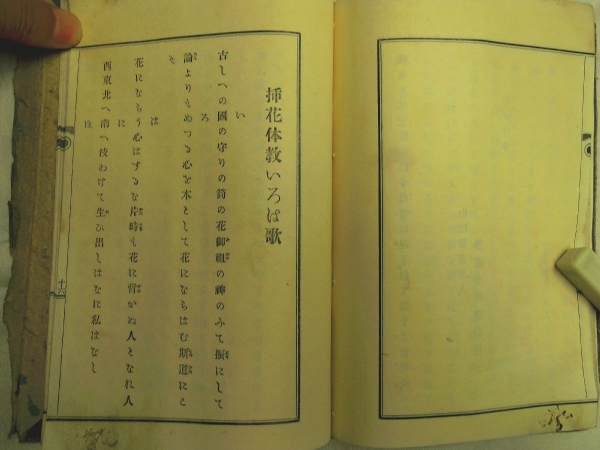 挿花体教いろは歌
い
古しへの國の守りの筒の花御祖の神のみて振にして
ろ
論よりもめづる心を本として花にならはむ斯道にそ
は
花にならう心はずるな片時も花に背かぬ人となれ人
に
西東北へ南へ枝わけて生ひ出しはなに私はなし
ほ
十六